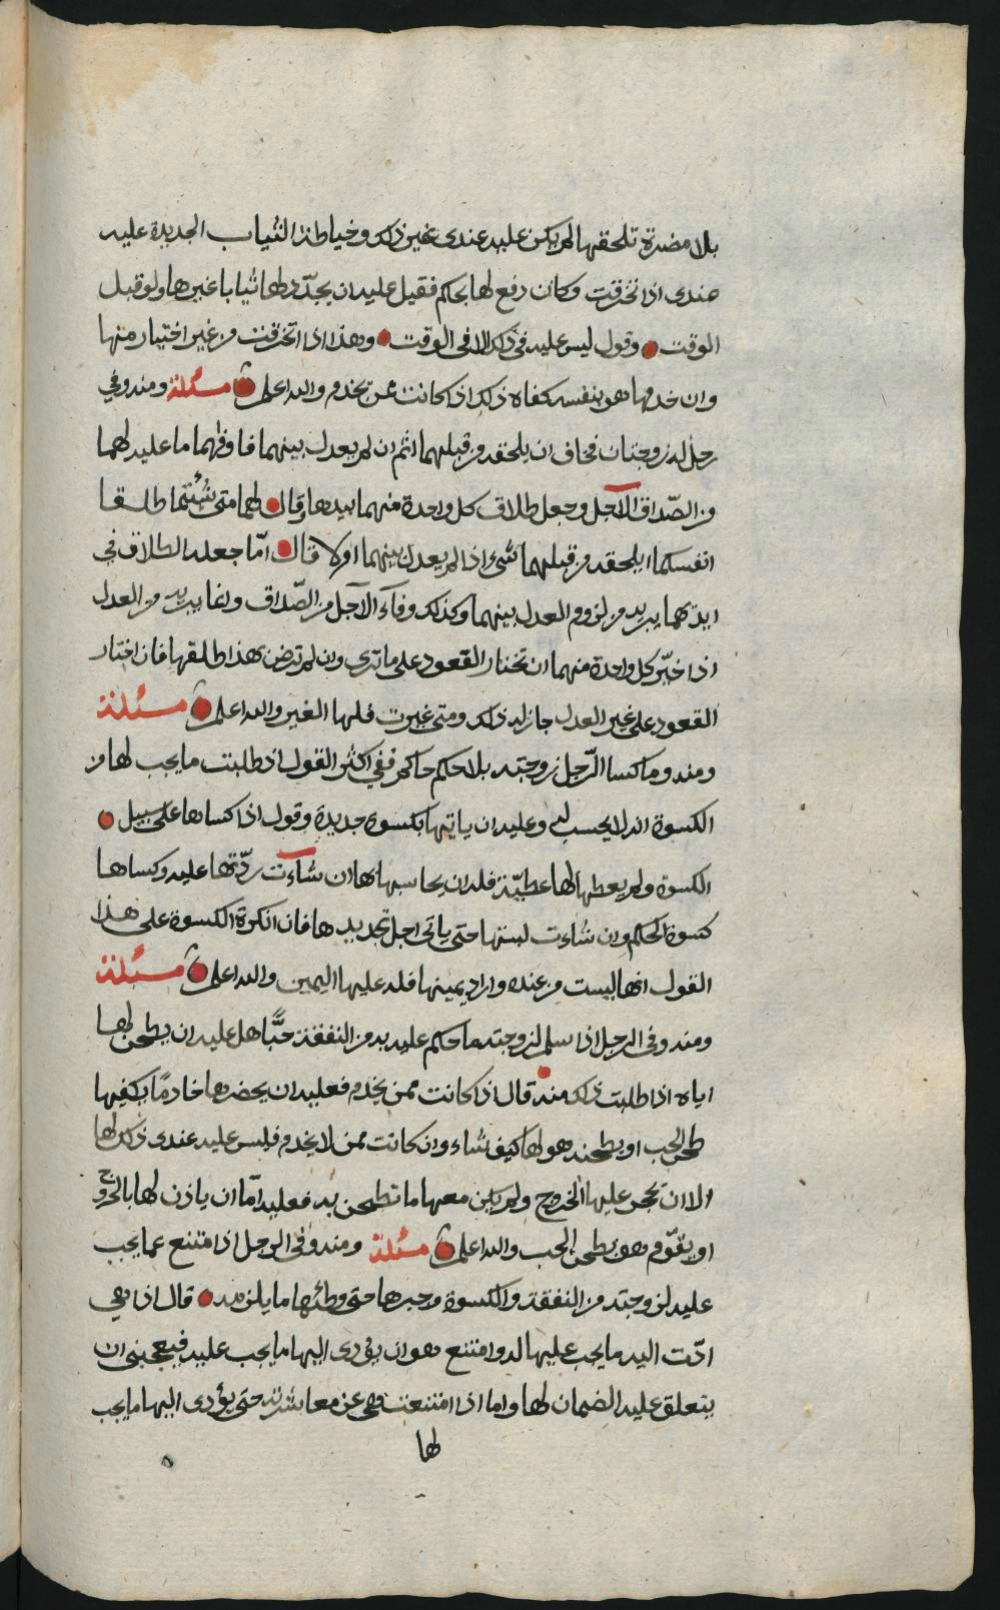 بلا مضرة تلحقها لم يكن عليه عندى غير ذلك وخياطة الثياب الجديدة عليه
عندى اذا تخرقت وكان دفع لها بحكم فقيل عليه ان يجدّد لها ثيابا غيرها ولو قبل
الوقت وقول ليس عليه فى ذلك الا فى الوقت وهذا اذا انخرقت من غير اختيار منها
وان خدمها هو بنفسه كفاه ذلك اذا كانت ممن تخدم والله اعلم مسئلة ومنه وفي
رجل له زوجتان فخاف ان يلحقه من قبلهما اثم ان لم يعدل بينهما فاوفاهما ما عليه لهما
من الصّداق الآجل وجعل طلاق كل واحدة منهما بيدها وقال لهما متى شئتما طلقا
انفسكما ايلحقه من قبلهما شىء اذا لم يعدل بينهما اولا قال امّا جعله الطلاق في
ايديهما يريد من لزوم العدل بينهما وكذلك وفآء الآجل من الصّداق وانما يريد من العدل
اذا خيّر كل واحدة منهما ان تختار القعود على ما ترى وان لم ترض هذا طلقها فان اختار
القعود على غير العدل جاز له ذلك ومتى غيرت فلها الغير والله اعلم مسئلة
ومنه وما كسا الرّجل زوجته بلا حكم حاكم ففي اكثر القول اذا طلبت ما يجب لها من
الكسوة انه لا يحسب له وعليه ان ياتيها بكسوة جديدة وقول اذا كساها على سبيل
الكسوة ولم يعطها لها عطيّة فله ان يحاسبها بها ان شاءت ردّتها عليه وكساها
كسوة الحكم وان شاءت لبستها حتى ياتى اجل تجديدها فان انكرت الكسوة على هذا
القول انها ليست من عنده واراد يمينها فله عليها اليمين والله اعلم مسئلة
ومنه وفى الرجل اذا سلم لزوجته ما حكم عليه به من النفقة حبًّا هل عليه ان يطحن لها
اياه اذا طلبت ذلك منه قال اذا كانت ممن يخدم فعليه ان يحضرها خادمًا يكفيها
طحن الحب او يطحنه هو لها كيف شاء وان كانت ممن لا يخدم فليس عليه عندى ذلك لها
الا ان يحجر عليها الخروج ولم يكن معها ما تطحن به فعليه امّا ان ياذن لها بالخروج
او يقوّم هو بطحن الحب والله اعلم مسئلة ومنه وفى الرجل اذا امتنع عما يجب
عليه لزوجته من النفقة والكسوة وجبرها حتى وطئها ما يلزمه قال اذا هي
ادّت اليه ما يجب عليها له وامتنع هو ان يؤدى اليها ما يجب عليه فيعجبنى ان
يتعلق عليه الضمان لها واما اذا امتنعت هى عن معاشرته حتى يؤدى اليها ما يجب
لها